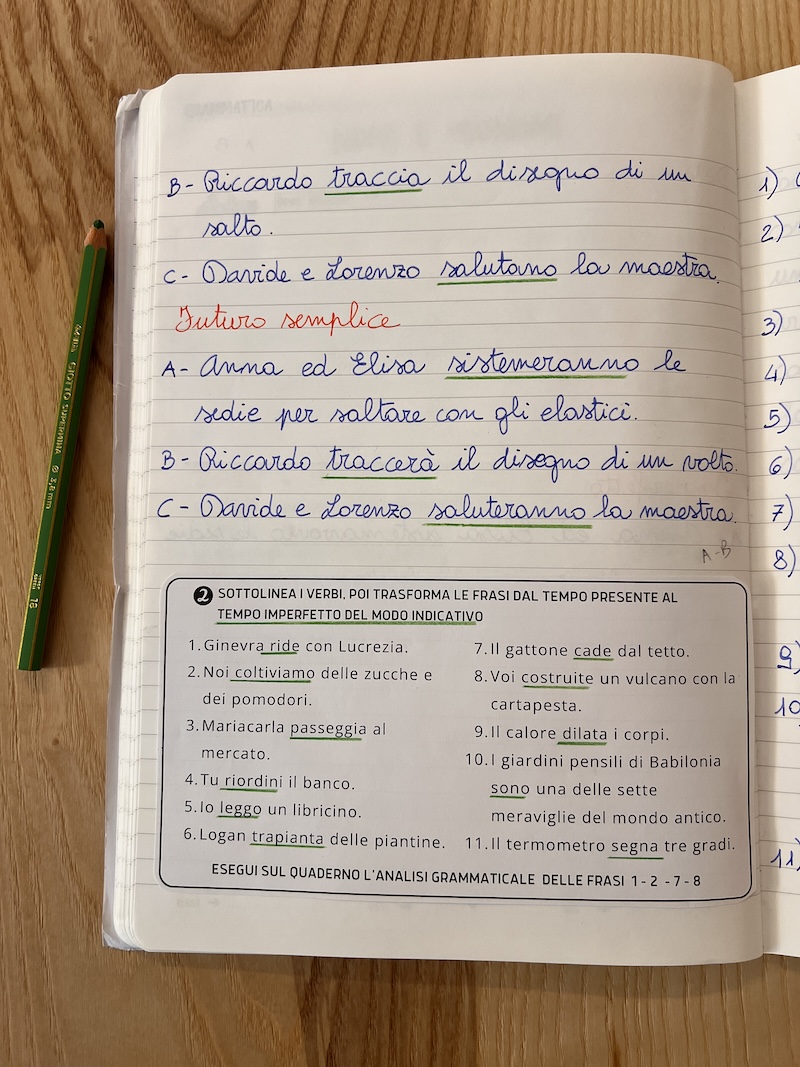 B- Riccardo traccia il disegno di un
salto.
C- Davide e Lorenzo salutano la maestra.
Futuro semplice
A- Anna ed Elisa sistemeranno le
sedie per saltare con gli elastici.
B- Riccardo traccerà il disegno di un volto.
C- Davide e Lorenzo saluteranno la maestra.
A-B
2 SOTTOLINEA I VERBI, POI TRASFORMA LE FRASI DAL TEMPO PRESENTE AL
TEMPO IMPERFETTO DEL MODO INDICATIVO
1. Ginevra ride con Lucrezia.
2. Noi coltiviamo delle zucche e
dei pomodori.
3. Mariacarla passeggia al
mercato.
4. Tu riordini il banco.
5. Io leggo un libricino.
6. Logan trapianta delle piantine.
7. Il gattone cade dal tetto.
8. Voi costruite un vulcano con la
cartapesta.
9. Il calore dilata i corpi.
10. I giardini pensili di Babilonia
sono una delle sette
meraviglie del mondo antico.
11. Il termometro segna tre gradi.
ESEGUI SUL QUADERNO L'ANALISI GRAMMATICALE DELLE FRASI 1 - 2 - 7 - 8
1)
2)
3)
4)
5)
6)
7)
8)
9)
10
11)
GIOTTO SUPERMINA 3,8 mm